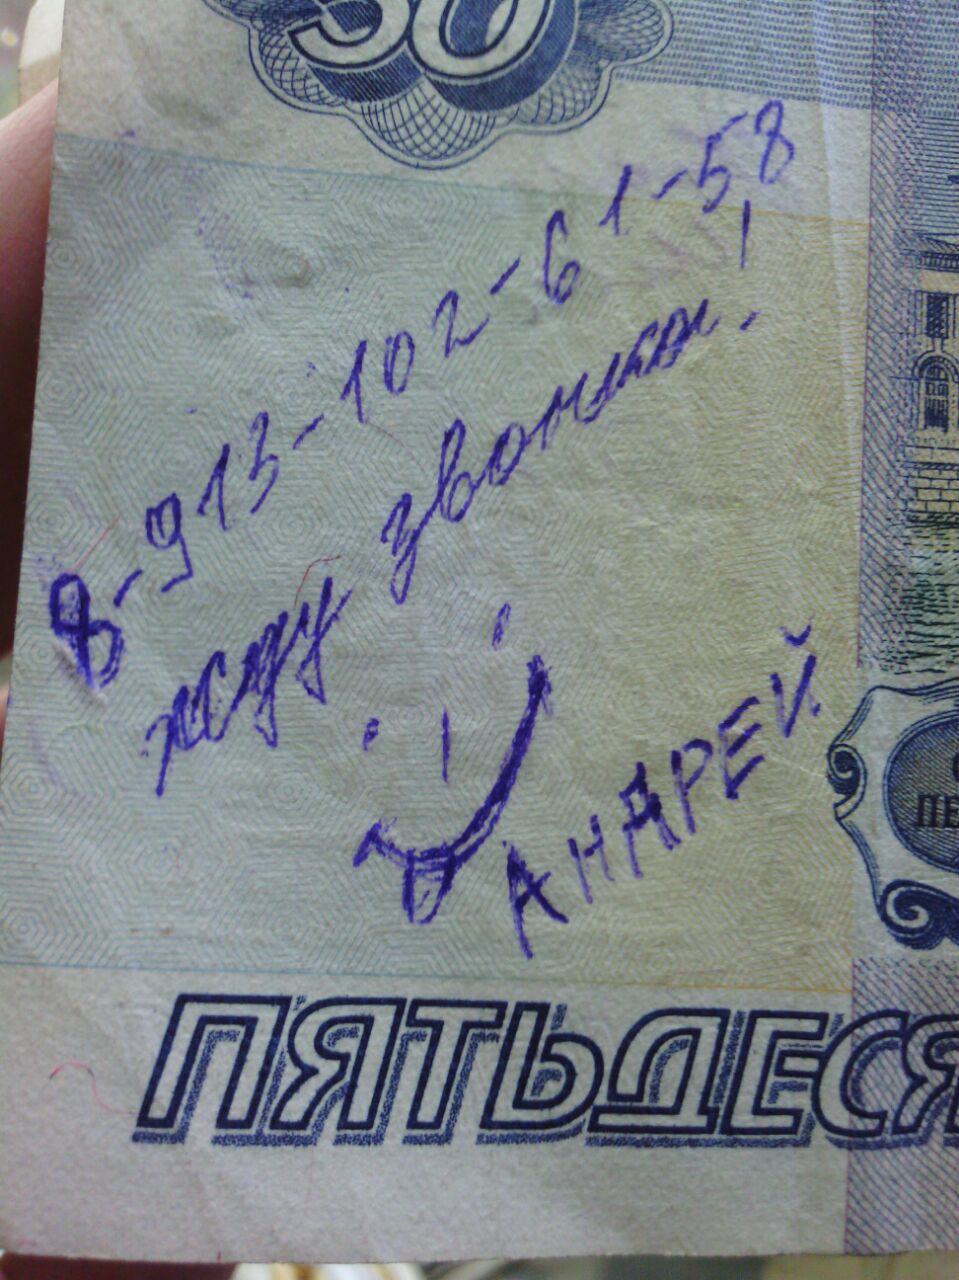 50
8-913-102-61-58
жду звонка!
АНДРЕЙ
ПЯТЬДЕСЯ
ПЕ